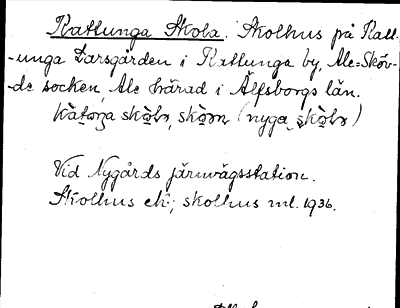 Kattunga Skola. Skolhus på Katt-
-unga Larsgården i Kattunga by, Ale-Sköv-
-de socken, Ale härad i Älfsborgs län.
(nyga
Vid Nygårds järnvägsstation.
Skolhus ek.; skolhus ml. 1936.